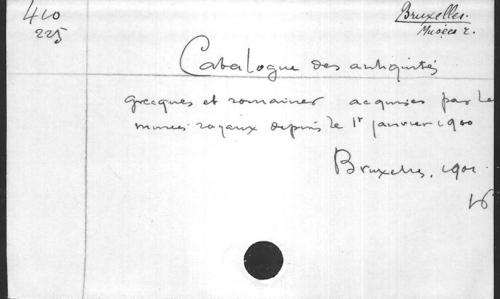 410
225
Bruxelles.
Musées r.
Catalogue des antiquités
grecques et romaines acquises par les
musées royaux depuis le 1r janvier 1900
Bruxelles, 1901